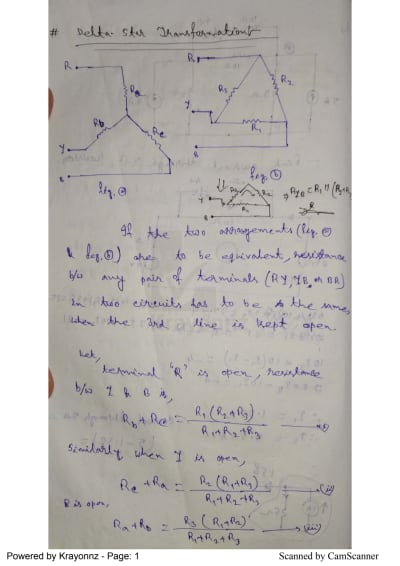 # Delta-Star Transformation :
R
R
Ra
R3
R2
Y
Rb
Rc
Y
R1
B
B
fig. (a)
fig. (b)
Y
R1
B
RYB = R1 || (R2+R3)
If the two arrangements (fig. (a)
& fig. (b)) are to be equivalent, resistance
b/w any pair of terminals (RY, YB, or BR)
in two circuits has to be the same,
when the 3rd line is kept open.
Let,
terminal 'R' is open, resistance
b/w Y & B is,
Rb + Rc = R1 (R2+R3) / R1+R2+R3 → (i)
Similarly when Y is open,
Rc + Ra = R2 (R1+R3) / R1+R2+R3 → (ii)
B is open,
Ra + Rb = R3 (R1+R2) / R1+R2+R3 → (iii)
Powered by Krayonnz - Page: 1
Scanned by CamScanner